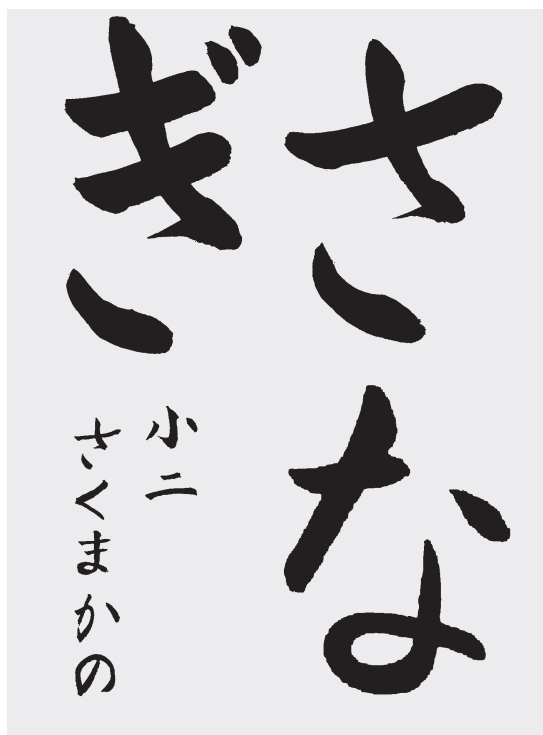 さな
ぎ
小二
さくまかの